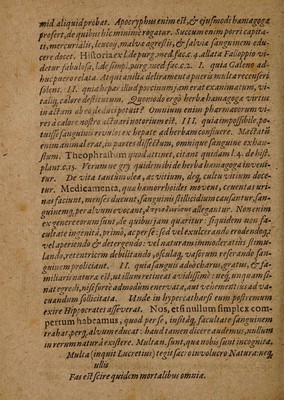 mid aliquid probat. Apocryphus enim est, & ejusmodi hæmagoga
profert, de quibus hîc minimè rogatur. Succum enim porri capita-
ti, mercurialis, leucoij, malvæ agrestis, & salviæ sanguinem edu-
cere docet. Historia ex l. de purg. med. fac. c. 4. allata Falloppio vi-
detur fabulosa, l. de simpl. purg. med. fac. c. 2. I. quia Galeno ad-
huc puero relata. At qui anilia deliramenta pueris multa recenseri
solent. II. quia hepar illud porcinum jam erat exanimatum, vi-
taliq; calore destitutum. Quomodo ergò herbæ hæmagogæ virtus
in actum ab eo deduci potuit? Omnium enim pharmacorum vi-
res à calore nostro activari notorium est. III. quia impossibile, po-
tuisse sanguinis evulsos ex hepate ad herbam confluere. Mactatũ
enim animal erat, in partes dissectum, omnique sanguine exhau-
stum. Theophrastum quod attinet, citant quidam l. 4. de hist.
plant. c. 25. Verùm ne gry quidem ibi de herbæ hæmagogæ inven-
tur. De vitæ tantùm olea, ac vitium, deq; calvu vitium docetur.
Medicamenta, quæ hæmorrhoides movent, cruentas uri-
nas faciunt, menses ducunt, sanguinis stillicidium causantur, san-
guinemq; per alvum evocant, allegantur. Non enim
ex genere eorum sunt, de quibus jam quæritur: siquidem non fa-
cultate ingenitâ, primò, ac per se: sed vel exulcerando erodendoq;
vel aperiendo & detergendo: vel naturam immoderatiùs stimu-
lando, retentricem debilitando, oscula, vasorum referando san-
guinem proliciant. If. quia sanguis adeò charus, gratus, & fa-
miliaris naturæ est, ut illum retineat avidissimè: neq; unquam si-
nat egredi, nisi fortè admodum enervata, aut vehementius ad va-
cuandum sollicitata. Unde in hypercatharsi eum postremum
exire Hippocrates asseverat. Nos, etsi nullum simplex com-
pertum habeamus, quod per se, insitâq; facultate sanguinem
trahat, perq; alvum educat: haud tamen dicere audemus, nullum
in rerum natura existere. Multa n. sunt, quæ nobis sunt incognita,
Multa (inquit Lucretius) tegit sacro involucro Natura: neq;
ullis
Fas est scire quidem mortalibus omnia.